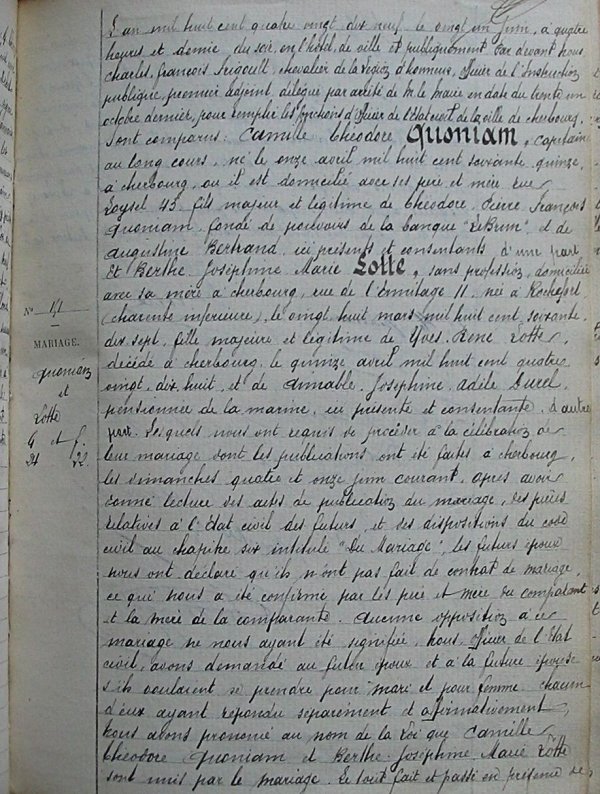 L'an mil huit cent quatre vingt dix neuf, le vingt un juin, à quatre
heures et demie du soir, en l'hôtel de ville et publiquement Par devant nous,
charles, françois chevalier de la Légion d'honneur, Officier de l'Instruction
publique, premier adjoint, délégué par arrêté de M. le Maire en date du trente un
octobre dernier, pour remplir les fonctions d'officier de l'Etat civil de la ville de cherbourg,
sont comparus: Camille théodore Quoniam, capitaine
au long cours, né le onze avril mil huit cent soixante quinze,
à cherbourg, où il est domicilié avec ses père et mère rue
Loysel 43, fils majeur et légitime de théodore, Pierre, François
Quoniam, fondé de pouvoirs de la banque "LeBrun" et de
augustine Bertrand, ici présents et consentants d'une part
Et Berthe Joséphine Marie Lotte, sans profession, domiciliée
avec sa mère à cherbourg, rue de l'Ermitage 11, née à Rochefort
(charente inférieure), le vingt huit mars mil huit cent soixante
dix sept, fille majeure et légitime de Yves René Lotte,
décédé à cherbourg, le quinze avril mil huit cent quatre
vingt, dix huit, et de aimable, Joséphine, adèle Durel,
pensionnée de la marine, ici présente et consentante, d'autre
part. Lesquels nous ont requis de procéder à la célébration de
leur mariage dont les publications ont été faites à cherbourg,
les dimanches quatre et onze juin courant. après avoir
donné lecture des actes de publication du mariage, des pièces
relatives à l'Etat civil des futurs, et des dispositions du code
civil au chapitre six intitulé "Du Mariage", les futurs époux
nous ont déclaré qu'ils n'ont pas fait de contrat de mariage,
ce qui nous a été confirmé par les père et mère du comparant
et la mère de la comparante. aucune opposition à ce
mariage ne nous ayant été signifiée, nous, Officier de l'Etat
civil, avons demandé au futur époux et à la future épouse
s'ils voulaient se prendre pour mari et pour femme. chacun
d'eux ayant répondu séparément et affirmativement,
nous avons prononcé au nom de la Loi que Camille
théodore Quoniam et Berthe Joséphine Marie Lotte
sont unis par le mariage. Le tout fait et passé en présence de
N° 151
MARIAGE.
Quoniam
et
Lotte